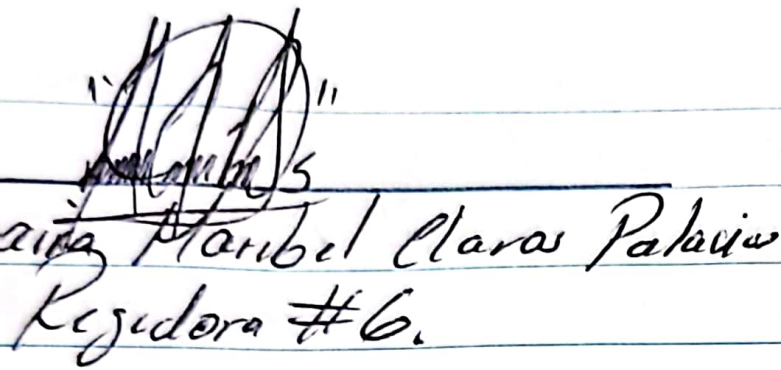 Maribel Claros Palacios
Regidora #6.